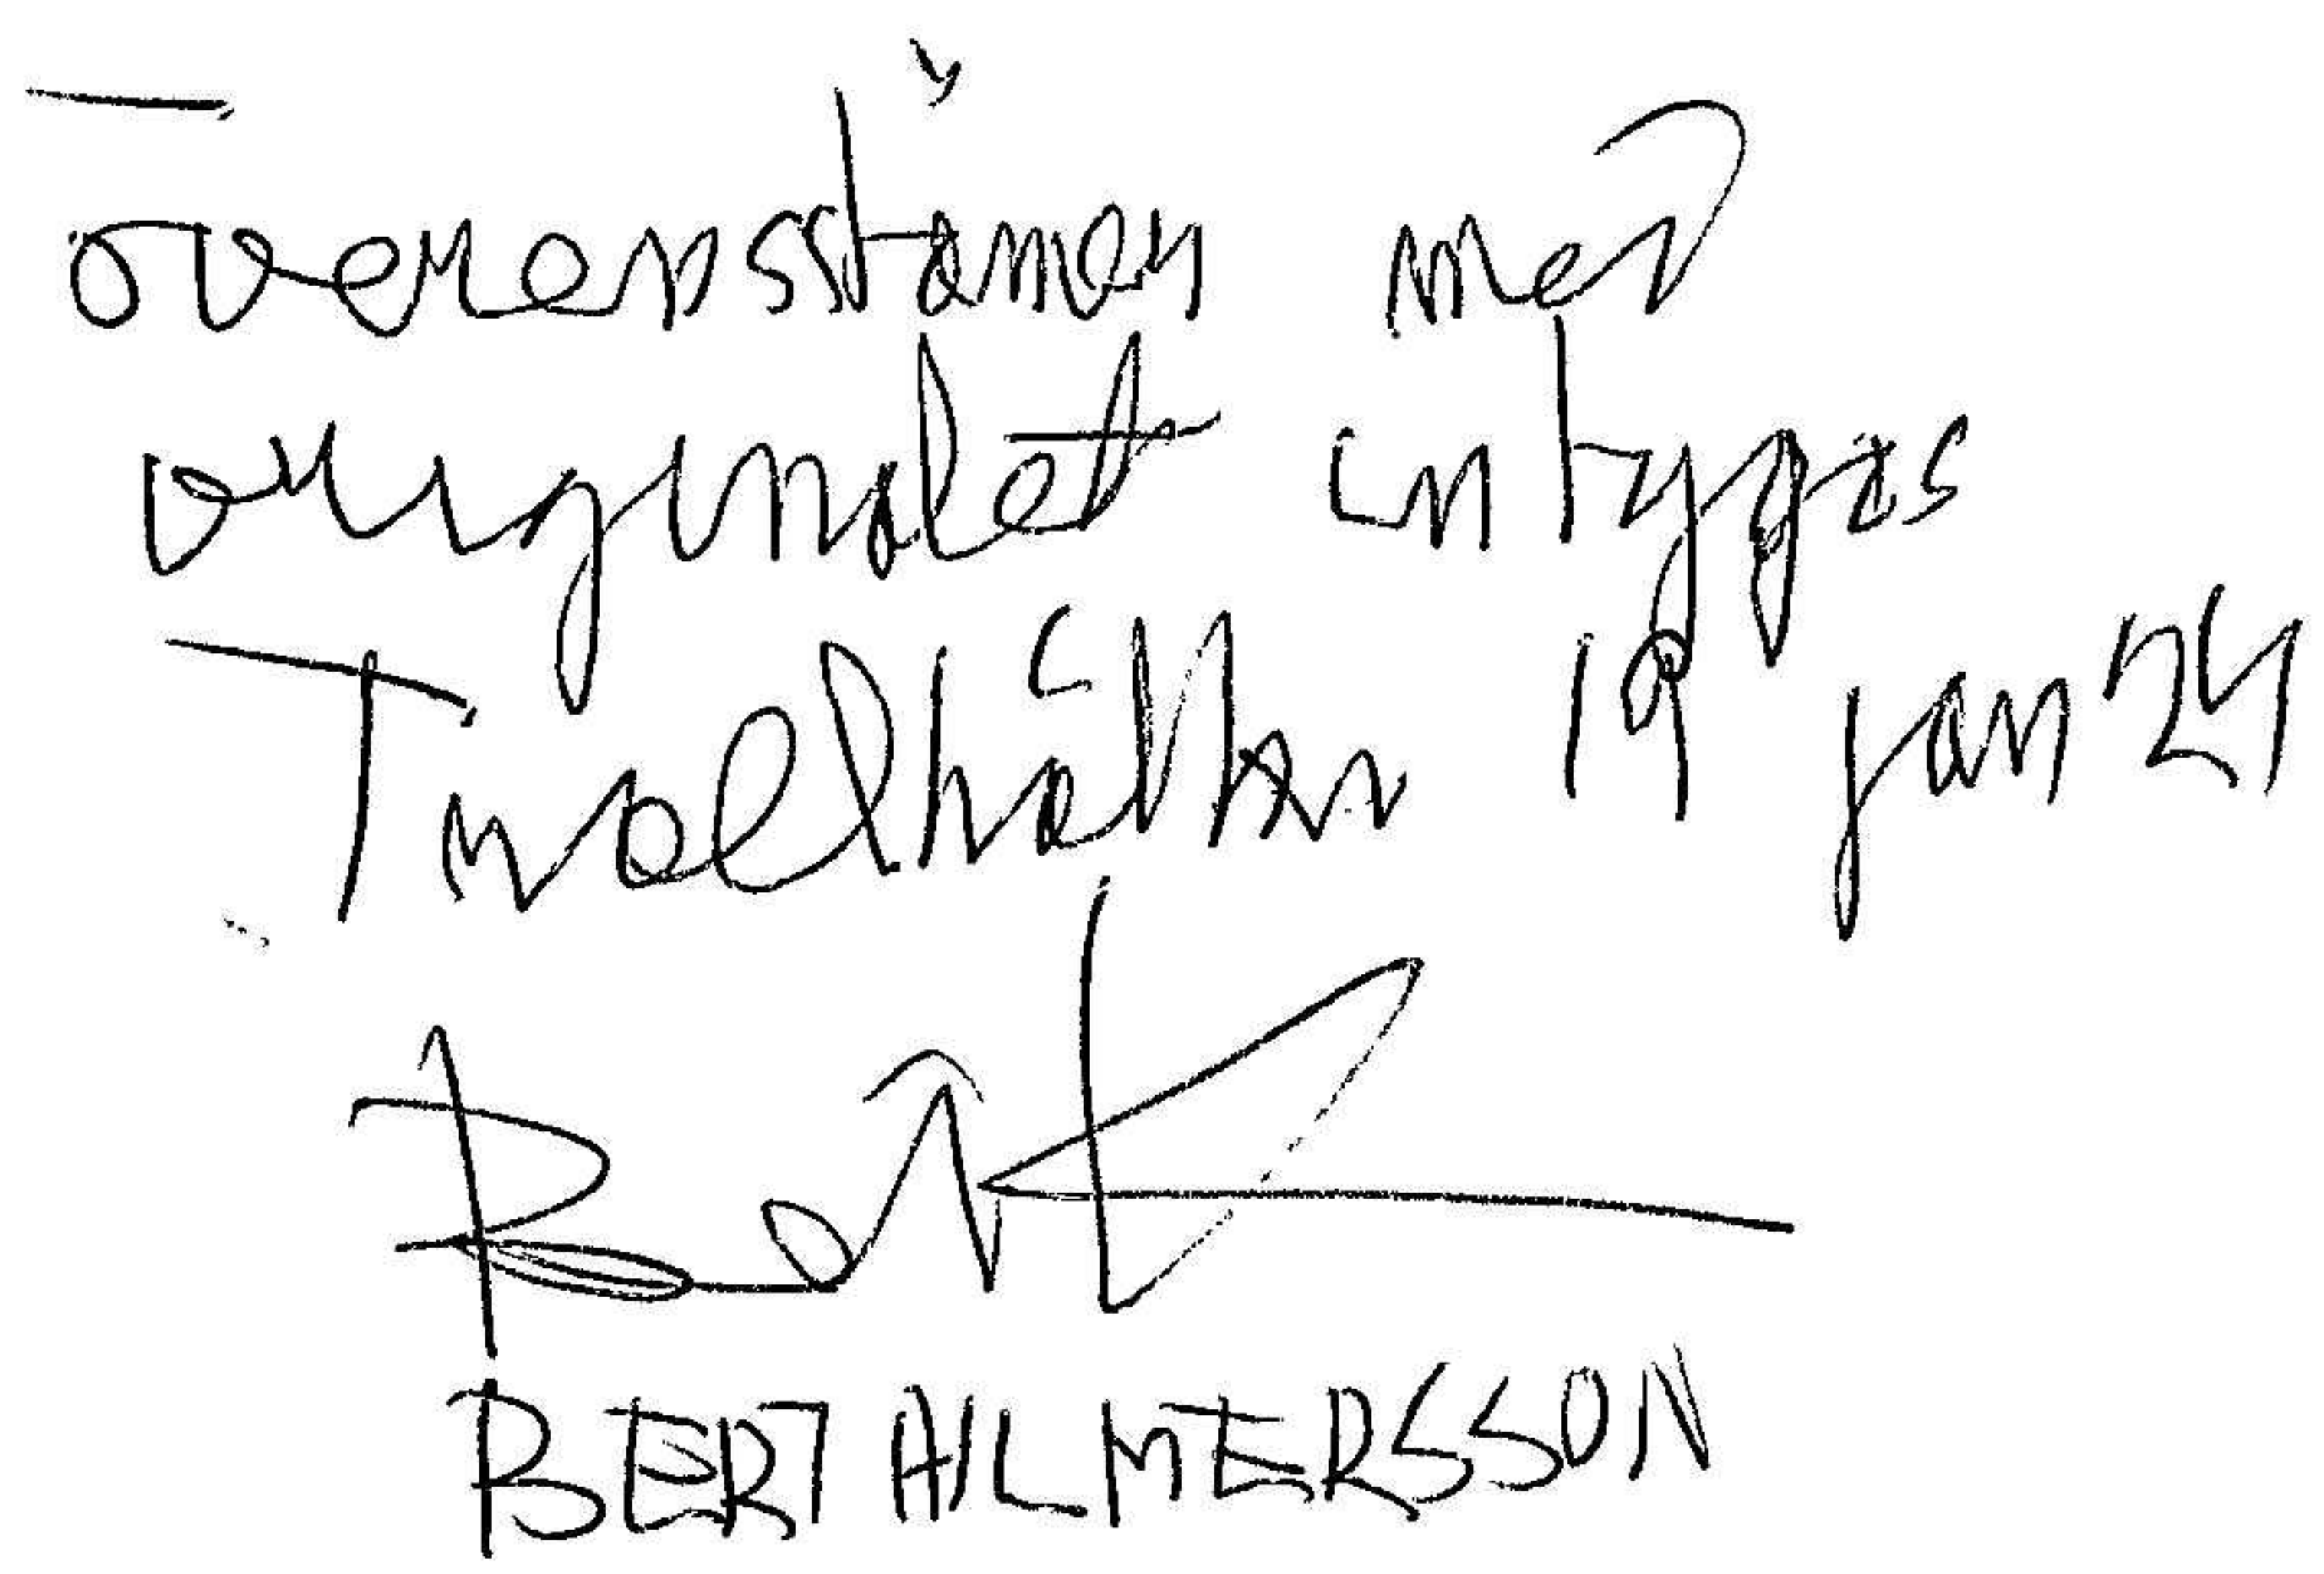 överenstämen med
originalet intygas
Trollhättan 19 jan 24
BERT HILMERSSON